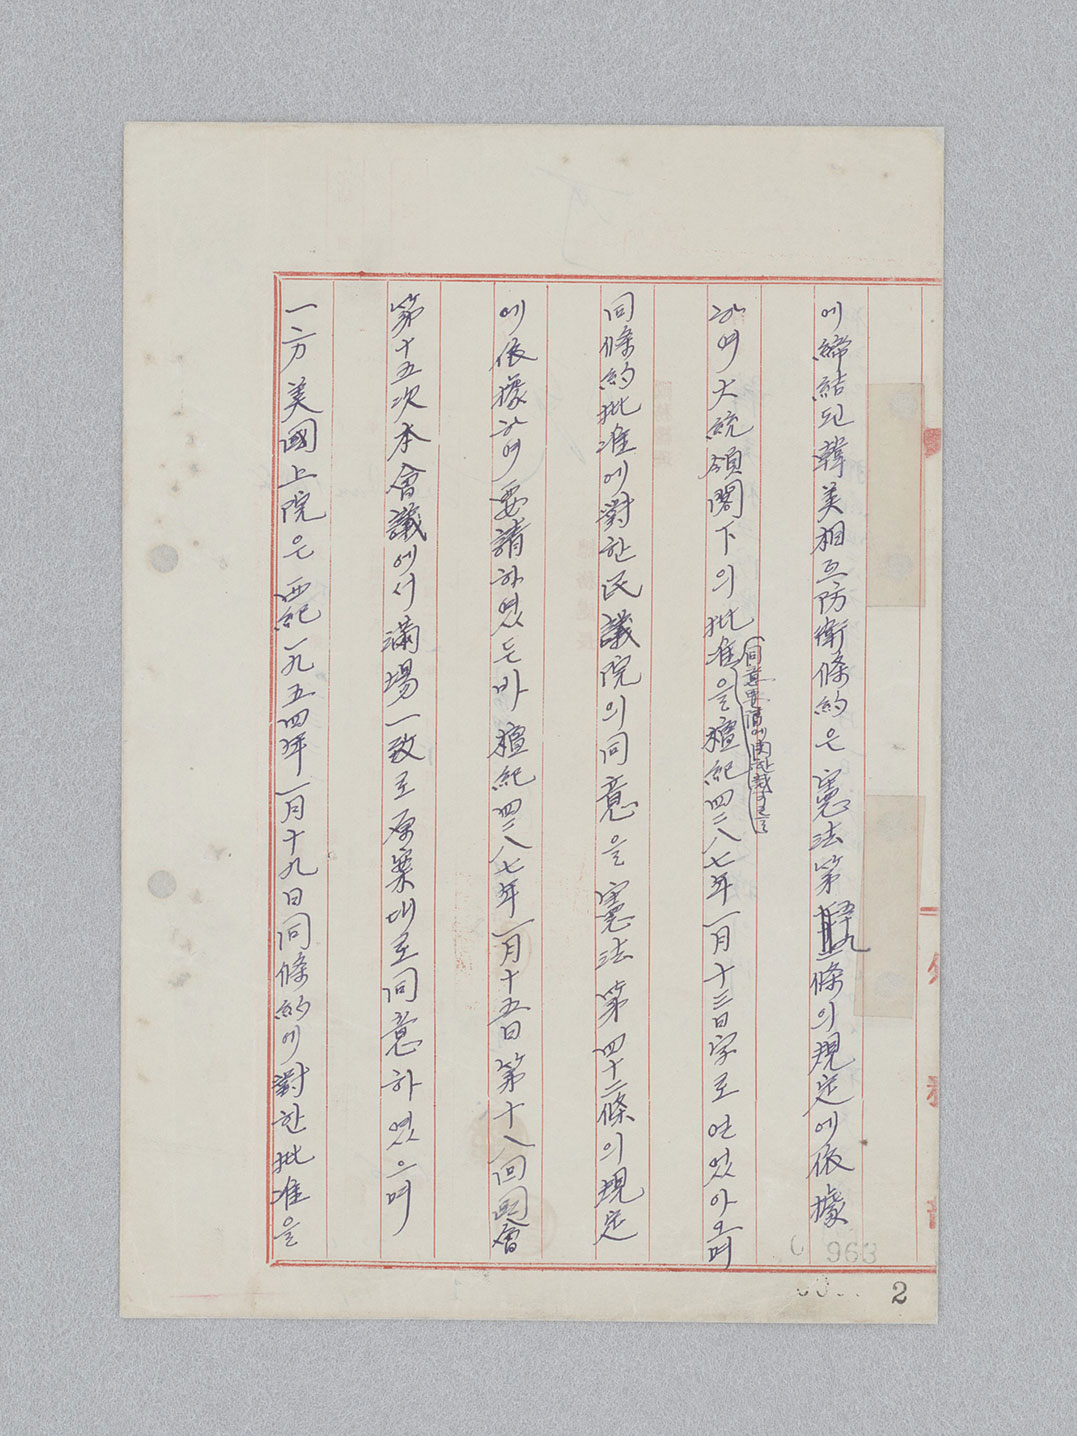 에締結된韓美相互防衛條約은憲法第五十九條의規定에依據
하여大統領閣下의批准을檀紀四二八七年一月十三日字로얻었아오며
同條約批准에對한民議院의同意을憲法第四十二條의規定
에依據하여要請하였든바檀紀四二八七年一月十五日第十八回國會
第十五次本會議에서滿場一致로原案대로同意하였으며
一方美國上院은西紀一九五四年一月十九日同條約에對한批准을
963
2